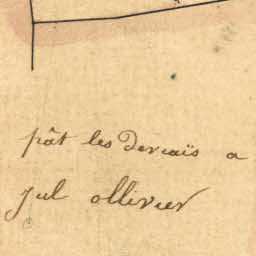 pât les Dervaïs a
jul ollivier